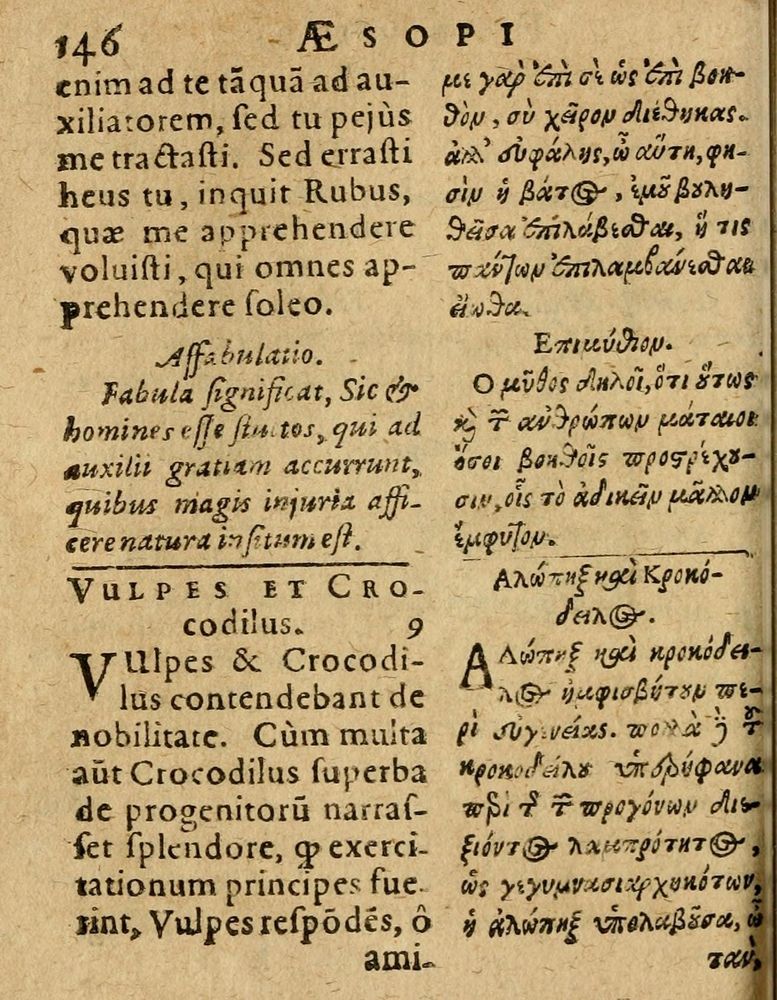 146 ÆSOPI
enim ad te tãquã ad au-
xiliatorem, ſed tu pejùs
me tractaſti. Sed erraſti
heus tu, inquit Rubus,
quæ me apprehendere
voluiſti, qui omnes ap-
prehendere ſoleo.
Affabulatio.
Fabula ſignificat, Sic &
homines eſſe ſtultos, qui ad
auxilii gratiam accurrunt,
quibus magis injuria affi-
cere natura inſitum eſt.
VULPES ET CRO-
codilus. 9
VUlpes & Crocodi-
lus contendebant de
nobilitate. Cùm multa
aũt Crocodilus ſuperba
de progenitorũ narraſ-
ſet ſplendore, ꝙ exerci-
tationum principes fue
rint, Vulpes reſpõdẽs, ô
ami-
με γὰρ ἐπὶ σὲ ὡς ἐπὶ βοη-
θὸν, σὺ χεῖρον διέθηκας.
ἀλλ' ἐσφάλης, ὦ αὕτη, φη-
σὶν ἡ βάτος, ἐμοῦ βουλη-
θεῖσα ἐπιλάβεσθαι, ἥ τις
πάντων ἐπιλαμβάνεσθαι
εἴωθα.
Επιμύθιον.
Ο μῦθος δηλοῖ, ὅτι οὕτως
καὶ τῶν ἀνθρώπων μάταιοι
ὅσοι βοηθοῖς προστρέχου-
σιν, οἷς τὸ ἀδικεῖν μᾶλλον
ἔμφυτον.
Αλώπηξ καὶ Κροκό-
δειλος.
Αλώπηξ καὶ κροκόδει-
λος ἠμφισβήτουν πε-
ρὶ εὐγενείας. πολλὰ δὲ τοῦ
κροκοδείλου ὑπερήφανα
περὶ τῆς τῶν προγόνων διε-
ξιόντος λαμπρότητος,
ὡς γεγυμνασιαρχηκότων,
ἡ ἀλώπηξ ὑπολαβοῦσα, ὦ
ταν,